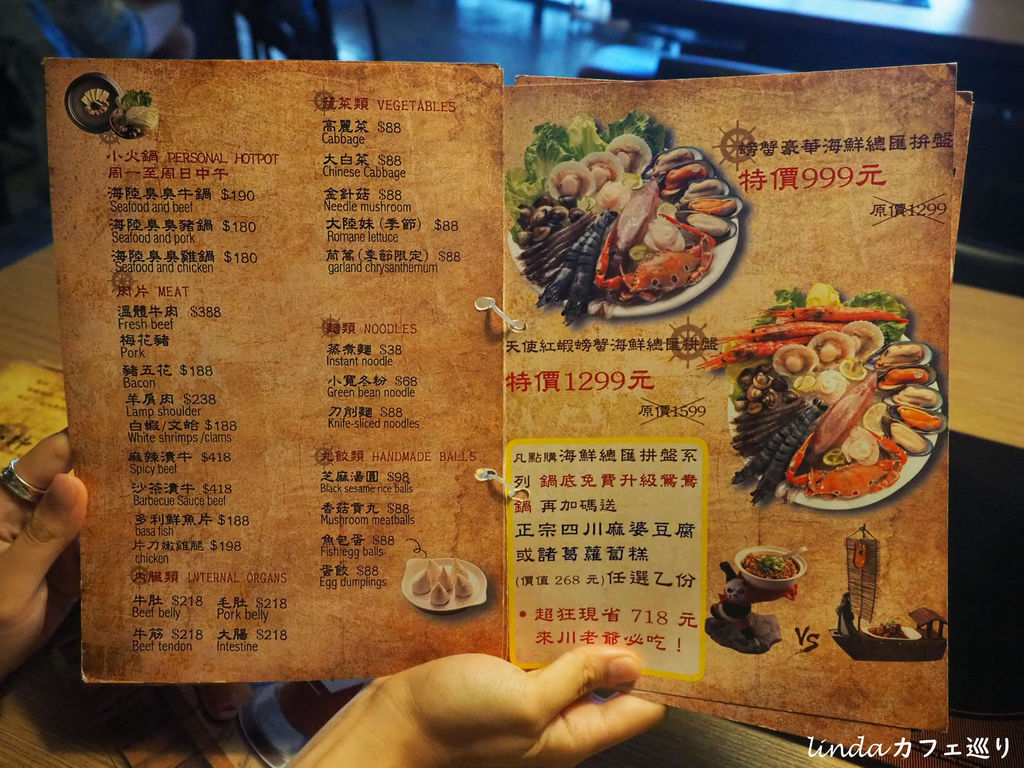 小火鍋 PERSONAL HOTPOT
周一至周日中午
海陸臭臭牛鍋 $190
Seafood and beef
海陸臭臭豬鍋 $180
Seafood and pork
海陸臭臭雞鍋 $180
Seafood and chicken
肉片 MEAT
溫體牛肉 $388
Fresh beef
梅花豬
Pork
豬五花 $188
Bacon
羊肩肉 $238
Lamp shoulder
白蝦/文蛤 $188
White shrimps /clams
麻辣漬牛 $418
Spicy beef
沙茶漬牛 $418
Barbecue Sauce beef
多利鮮魚片 $188
basa fish
片刀嫩雞腿 $198
chicken
內臟類 INTERNAL ORGANS
牛肚 $218 毛肚 $218
Beef belly Pork belly
牛筋 $218 大腸 $218
Beef tendon Intestine
蔬菜類 VEGETABLES
高麗菜 $88
Cabbage
大白菜 $88
Chinese Cabbage
金針菇 $88
Needle mushroom
大陸妹(季節) $88
Romane lettuce
茼蒿(季節限定) $88
garland chrysanthemum
麵類 NOODLES
蒸煮麵 $38
Instant noodle
小寬冬粉 $68
Green bean noodle
刀削麵 $88
Knife-sliced noodles
丸餃類 HANDMADE BALLS
芝麻湯圓 $98
Black sesame rice balls
香菇貢丸 $88
Mushroom meatballs
魚包蛋 $88
Fish egg balls
蛋餃 $88
Egg dumplings
螃蟹豪華海鮮總匯拼盤
特價999元
原價1299
天使紅蝦螃蟹海鮮總匯拼盤
特價1299元
原價1599
凡點購海鮮總匯拼盤系
列 鍋底免費升級鴛鴦
鍋 再加碼送
正宗四川麻婆豆腐
或諸葛蘿蔔糕
(價值 268 元)任選乙份
• 超狂現省 718 元
來川老爺必吃！
VS
lindaカフェ巡り